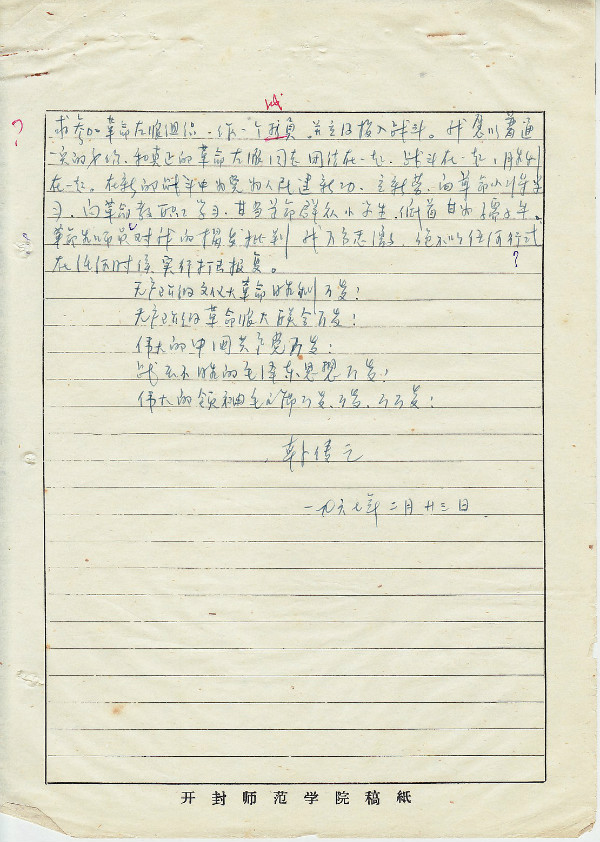 求参加革命左派组织，作一个成员，并立即投入战斗。我愿以普通
一员的身份，和真正的革命左派同志团结在一起，战斗在一起，胜利
在一起。在新的战斗中为党为人民建新功，立新劳，向革命小将学
习，向革命教职工学习，甘当革命群众小学生，俯首甘为孺子牛。
革命师员对我的揭发批判，我万分感激，绝不以任何形式
在任何时候实行打击报复。
?
?
无产阶级文化大革命胜利万岁！
无产阶级革命派大联合万岁！
伟大的中国共产党万岁！
战无不胜的毛泽东思想万岁！
伟大的领袖毛主席万岁，万岁，万万岁！
韩倩之
一九六七年二月廿三日
开封师范学院稿纸